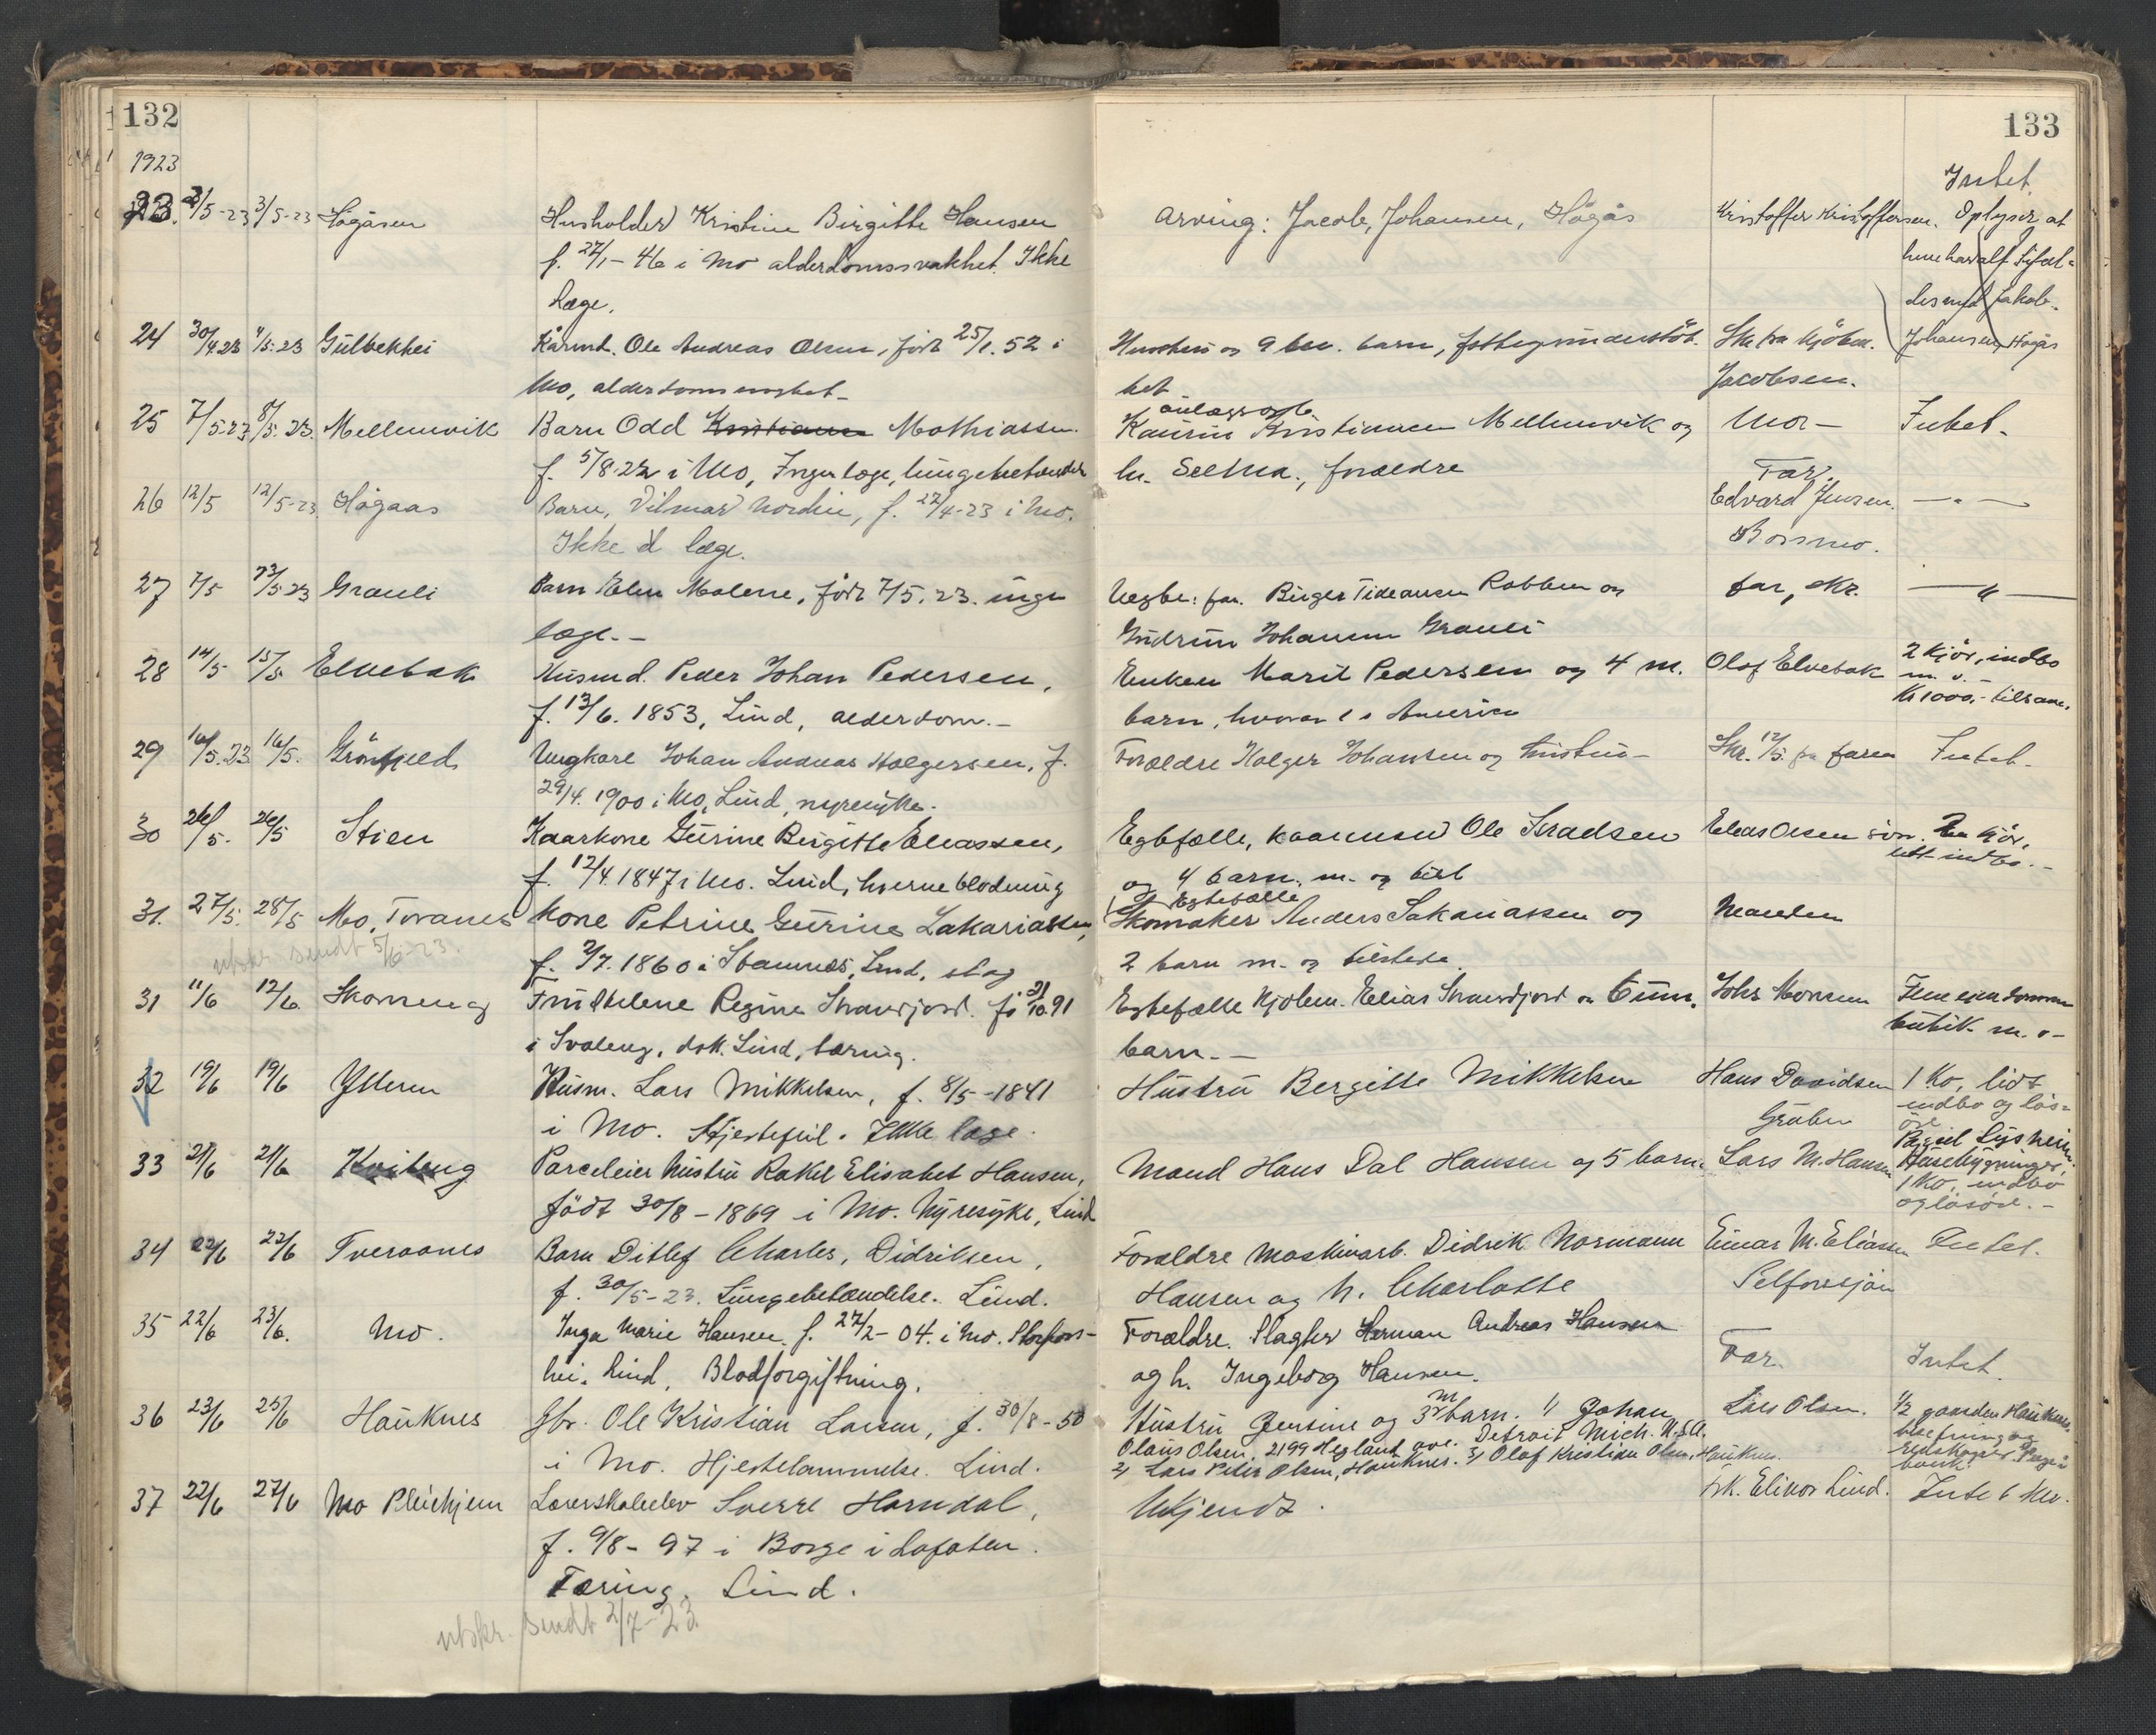 132
1923
23. 2/5-23 3/5-23 Högåsen Husholder Kristine Birgitte Hansen
f. 27/1-46 i Mo alderdomssvakhet. Ikke
læge.
24 30/4 23 4/5.23 Gülbekhei Kårmd. Ole Andreas Olsen, født 25/1.52 i
Mo, alderdom
25 7/5.23 8/5.23. Mellemvik Barn Odd Kristiansen Mathiassen.
f. 5/8.22 i Mo, Ingen læge, lüngebetændelse
26 12/5 12/5-23 Högaas Barn, Vilmar Nordin, f. 22/4-23 i Mo.
Ikke læge.
27 7/5 13/5 23 Grauli Barn Malene, født 7/5.23. ingen
læge.-
28 14/5 15/5 Elvebak Hüsmd. Peder Johan Pedersen,
f. 13/6. 1853, Lind, alderdom.-
29 16/5.23 16/5. Grönfjeld Ungkarl Johan Andreas Holgersen, f.
29/4. 1900 i Mo, Lind, nyresyke.
30 26/5. 26/5 Stien Kaarkone Gürine Birgitte Eliassen,
f. 12/4 1847 i Mo. Lind, hjerneblødning
31. 27/5. 28/5 Mo, Tvranes Kone Petrine Gürine Zakariassen,
utskr. sendt 5/6-23.
f. 2/7. 1860 i Stamnes, Lind, slag
31 11/6 12/6. Skonseng Frü Helene Regine Strandjord. f. 31/10.91
i Svaleng, dok. Lind, tæring.
32 19/6 19/6 Ytteren Hüsm. Lars Mikkelsen, f. 8/5-1841
i Mo. Hjertefeil. Ikke læge.
33 21/6 21/6 Kviteng Parceleier hüstrü Rakel Elisabet Hansen,
födt 30/8-1869 i Mo. Nyresyke, Lind
34 22/6 22/6 Tveraanes Barn Ditlef Charles, Didriksen,
f. 30/5-23. Lüngebetændelse. Lind.
35 22/6 23/6. Mo. Inga Marie Hansen f. 27/2-04. i Mo. Storfors-
hei. Lind, Blodforgiftning.
36 23/6 25/6 Haüknes Gbr. Ole Kristian Larsen, f. 30/8-50
i Mo. Hjertelammelse. Lind.
37 22/6 27/6 Mo Pleiehjem Lærerskoleelev Sverre Horndal,
f. 9/8-97 i Borge i Lofoten.
Tæring. Lind.
utskr. sendt 2/7-23
133
Intet.
Arving: Jacob, Johansen, Högås Kristoffer Kristoffersen. Oplyser at
hun har alt
des med Jakob
Johansen, Högås
og 9 barn, fattigunderstöt- Skr. fra Kjöbm.
tet Jacobsen.
anlægsarb.
Kaurin Kristiansen Mellemvik og Mor- Intet.
h. Selma, forældre
Far.
Edvard Jensen. —"—
Bossmo.
Uegte: far. Birger Tideansen Robben og far, skr. —"—
Güdrün Johansen Grauli
Enken Marit Pedersen og 4 m. Olaf Elvebak 2 kjør, indbo
m. v.-
barn, hvorav 1 i Amerika Kr 1000,- tilsam.
Forældre Holger Johansen og Kristine- Skr. 12/5 fra faren Intet.
Egtefælle, kaarmand Ole Isradsen Elias Olsen søn. 2 kjör,
litt indbo.-
og 4 barn, m. og til st
Egtefælle
Skomaker Anders Sakariassen og Manden
2 barn m. og tilstede.
Egtefælle Kjøbm. Elias Strandjord og 6 ün. Johs Monsen eiendommen
bütik m. v-
barn.-
Hüstrü Bergitte Mikkelsen Hans Davidsen 1 ko, lidt
indbo og løs=
Grüben öre
Mand Hans Dal Hansen og 5 barn. Lars M. Hansen Parcel Lysheim
Hüsebygninger,
1 ko, indbo
og løsöre.-
Forældre maskinarb. Didrik Normann Einar M. Eliassen Intet.
Hansen og h. Charlotte Selforssjøen
Forældre. Slagter Herman Andreas Hansen
og h. Ingeborg Hansen. Far. Intet.
Hüstrü Jensine og 3 m barn. 1/ Johan Lars Olsen. 1/2 gaarden Haüknes,
Olaüs Olsen, 2199 Hegland ave. Detroit Mich. U.S.A. besetning og
2/ Lars Peter Olsen, Haüknes. 3/ Olaf Kristian Olsen, Haüknes. redskaper. Penge i
bank.
Ukjendt. frk. Elinor Lind. Intet